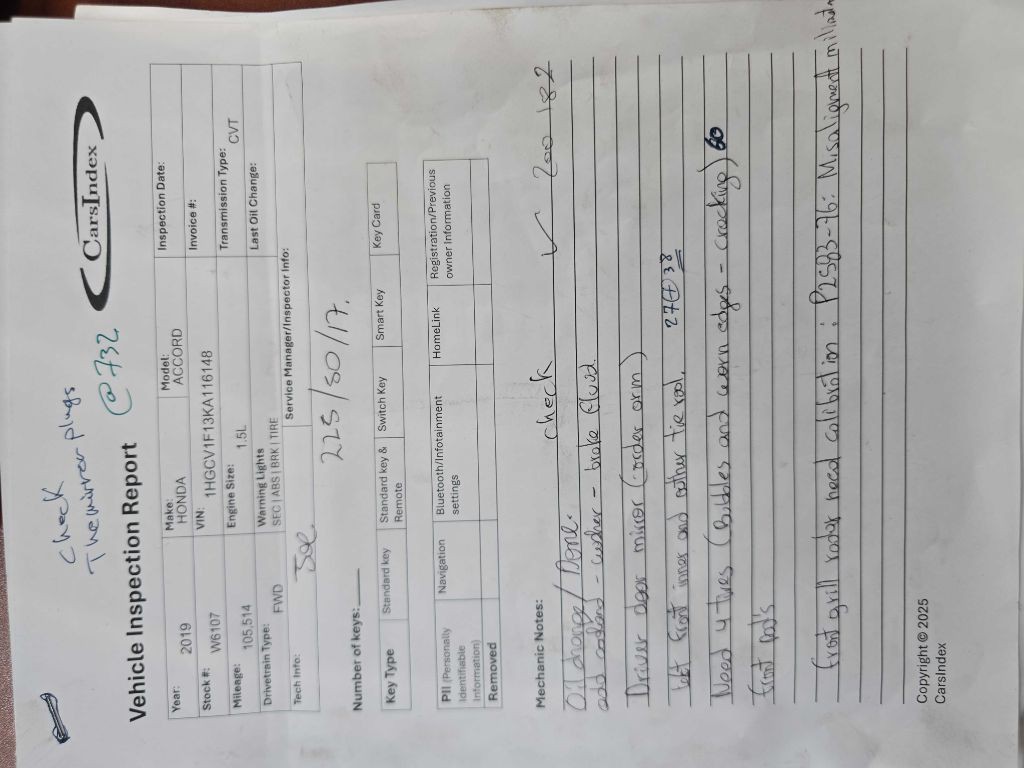 check
The mirror plugs
@ 732
CarsIndex
Vehicle Inspection Report
Year: 2019
Make: HONDA
Model: ACCORD
Inspection Date:
Stock #: W6107
VIN: 1HGCV1F13KA116148
Invoice #:
Mileage: 105,514
Engine Size: 1.5L
Transmission Type: CVT
Drivetrain Type: FWD
Warning Lights
SFC | ABS | BRK | TIRE
Last Oil Change:
Tech Info: Joe
Service Manager/Inspector Info:
225/50/17.
Number of keys:
Key Type
Standard key
Standard key & Remote
Switch Key
Smart Key
Key Card
PII (Personally Identifiable Information) Removed
Navigation
Bluetooth/Infotainment settings
HomeLink
Registration/Previous owner Information
Mechanic Notes:
check
✓ 200 182
Oil change / Done.
add - washer - brake fluid.
Driver door mirror (order arm)
left front inner and outher tire rod. 27 38
Need 4 tires (Bubbles and worn edges - cracking) 60
front pad's
front grill radar need calibration : P2583-76: Misalignment
Copyright © 2025
CarsIndex